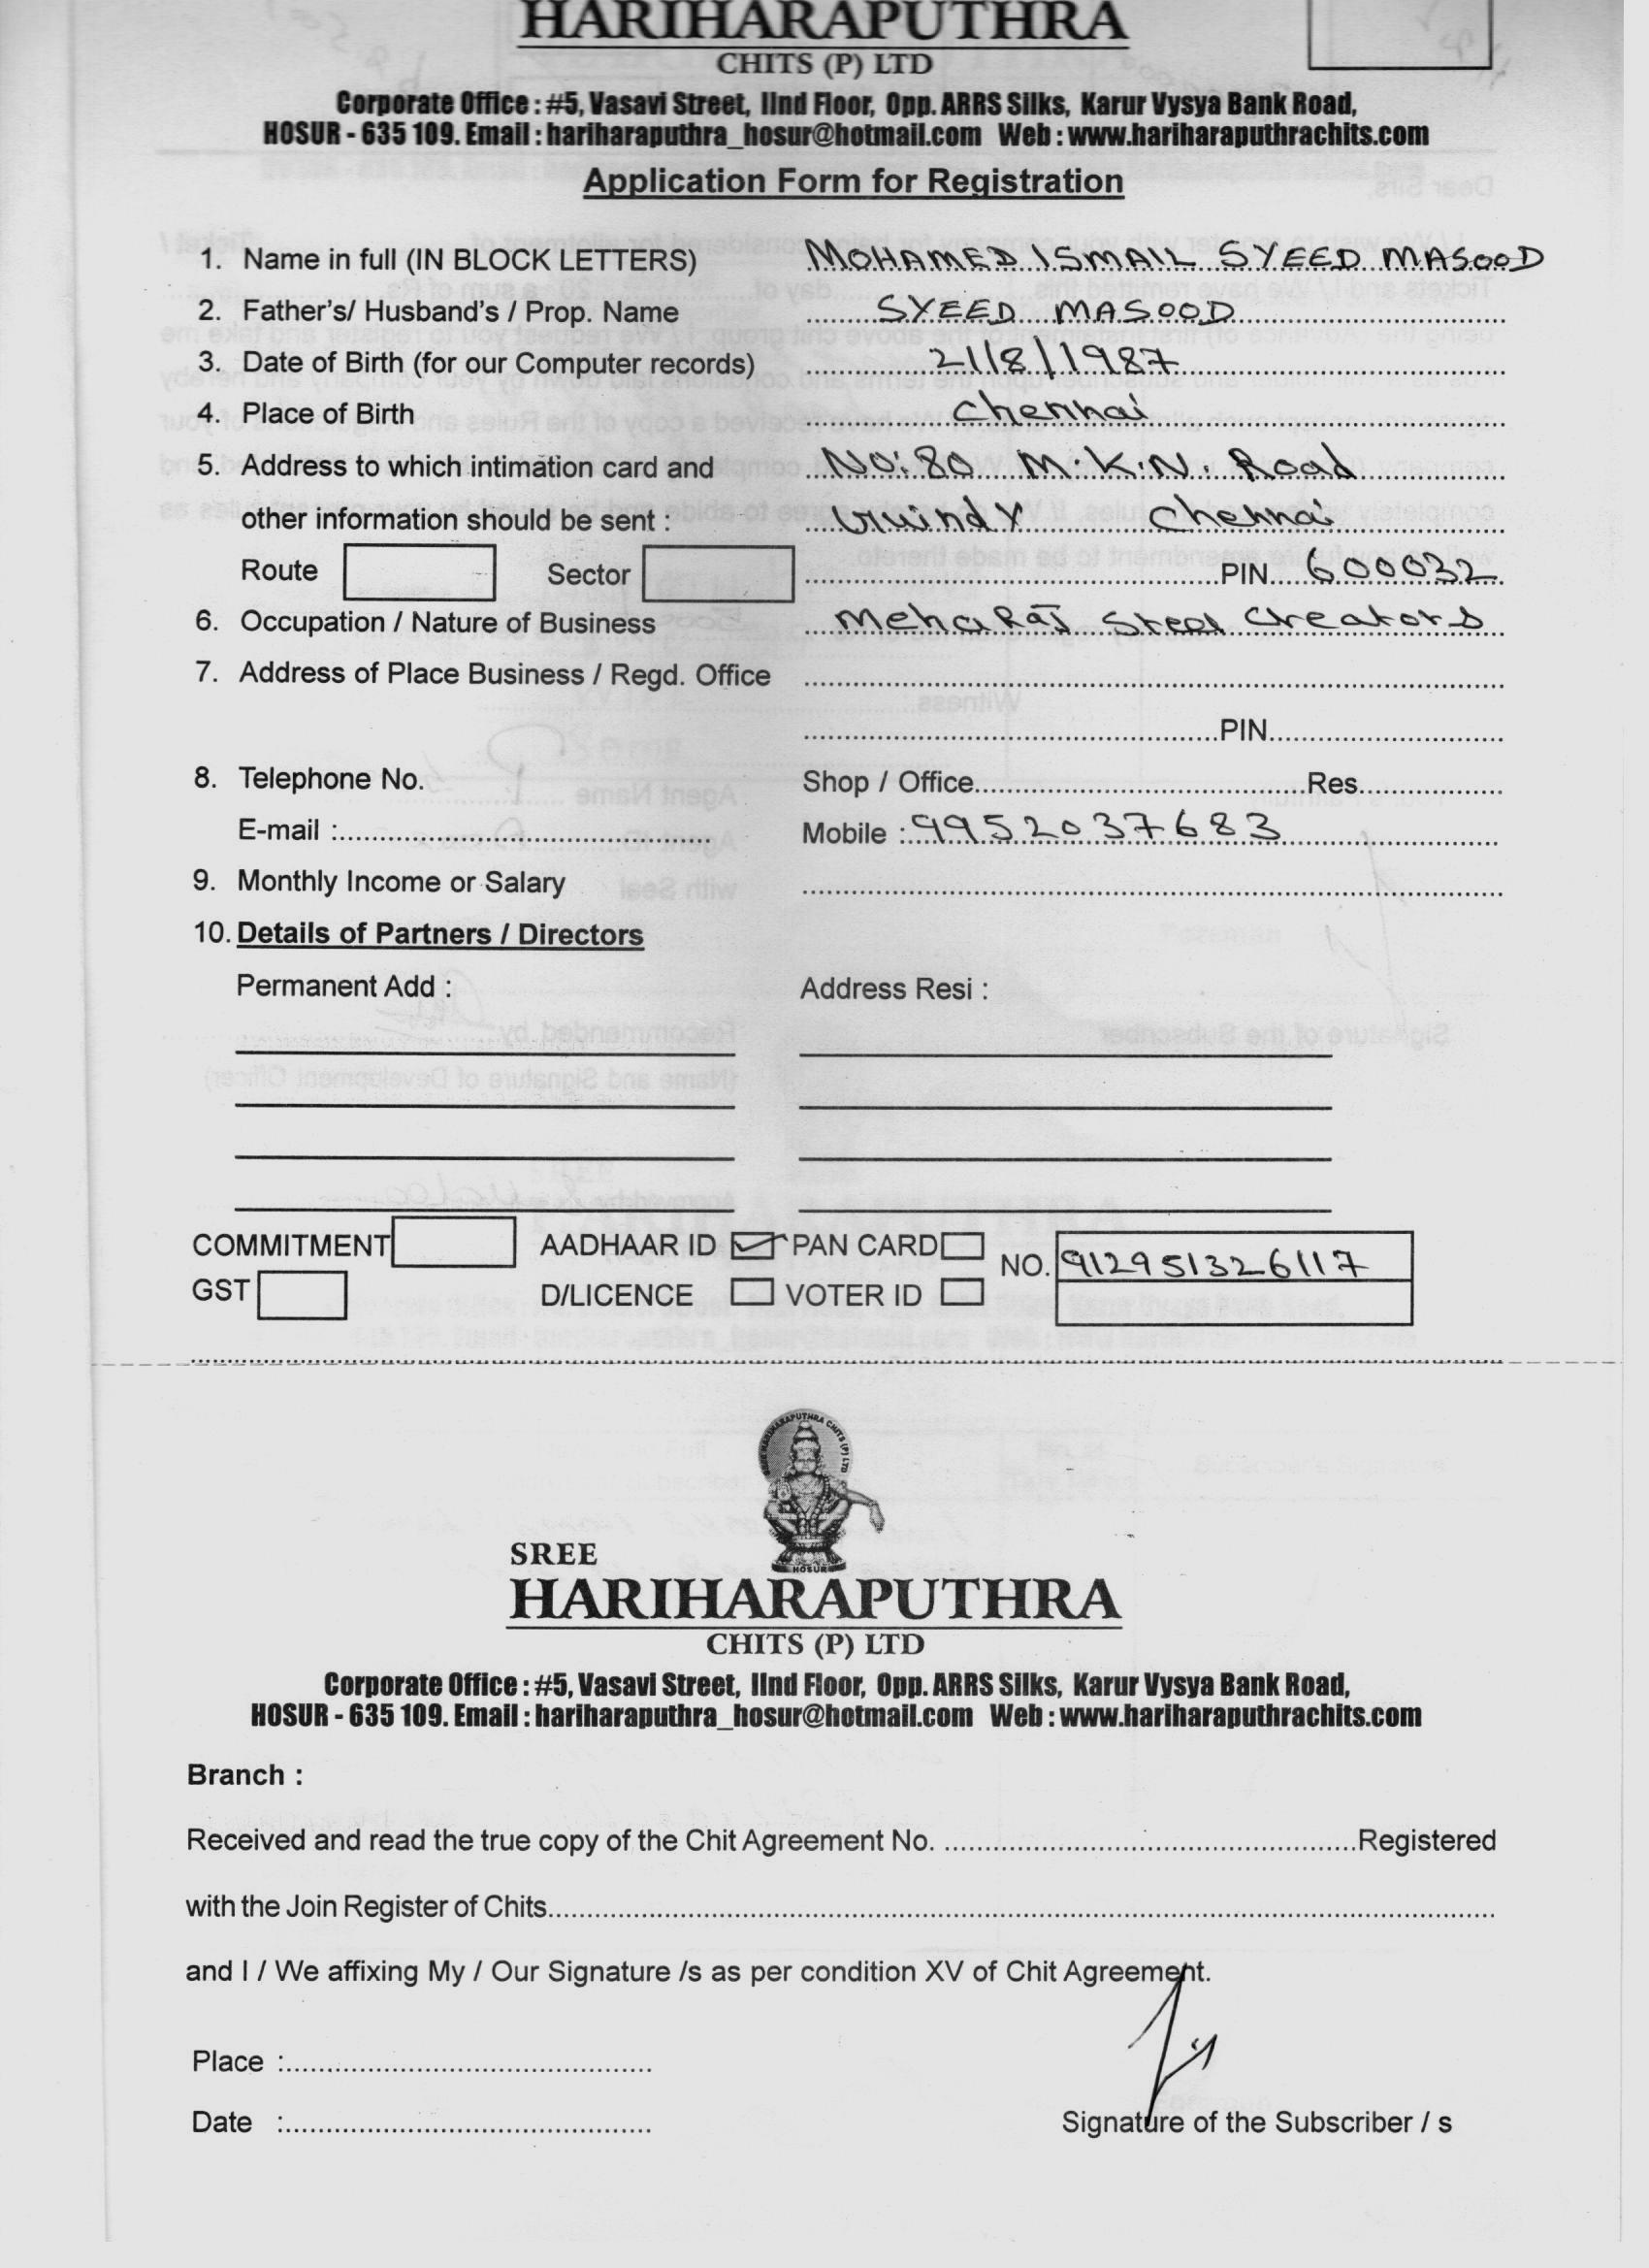 HARIHARAPUTHRA
CHITS (P) LTD
Corporate Office : #5, Vasavi Street, IInd Floor, Opp. ARRS Silks, Karur Vysya Bank Road,
HOSUR - 635 109. Email : hariharaputhra_hosur@hotmail.com Web : www.hariharaputhrachits.com
Application Form for Registration
1. Name in full (IN BLOCK LETTERS) MOHAMED ISMAIL SYEED MASOOD
2. Father's/ Husband's / Prop. Name SYEED MASOOD
3. Date of Birth (for our Computer records) 21/8/1987
4. Place of Birth Chennai
5. Address to which intimation card and No:80 Road
other information should be sent : Chennai
Route Sector PIN 600032
6. Occupation / Nature of Business Meharaj Steel Creators
7. Address of Place Business / Regd. Office
PIN
8. Telephone No. Shop / Office Res.
E-mail : Mobile : 9952037683
9. Monthly Income or Salary
10. Details of Partners / Directors
Permanent Add : Address Resi :
COMMITMENT AADHAAR ID PAN CARD NO. 912951326117
GST D/LICENCE VOTER ID
SREE HARIHARAPUTHRA CHITS (P) LTD
HOSUR
SREE
HARIHARAPUTHRA
CHITS (P) LTD
Corporate Office : #5, Vasavi Street, IInd Floor, Opp. ARRS Silks, Karur Vysya Bank Road,
HOSUR - 635 109. Email : hariharaputhra_hosur@hotmail.com Web : www.hariharaputhrachits.com
Branch :
Received and read the true copy of the Chit Agreement No. Registered
with the Join Register of Chits
and I / We affixing My / Our Signature /s as per condition XV of Chit Agreement.
Place :
Date :
Signature of the Subscriber / s